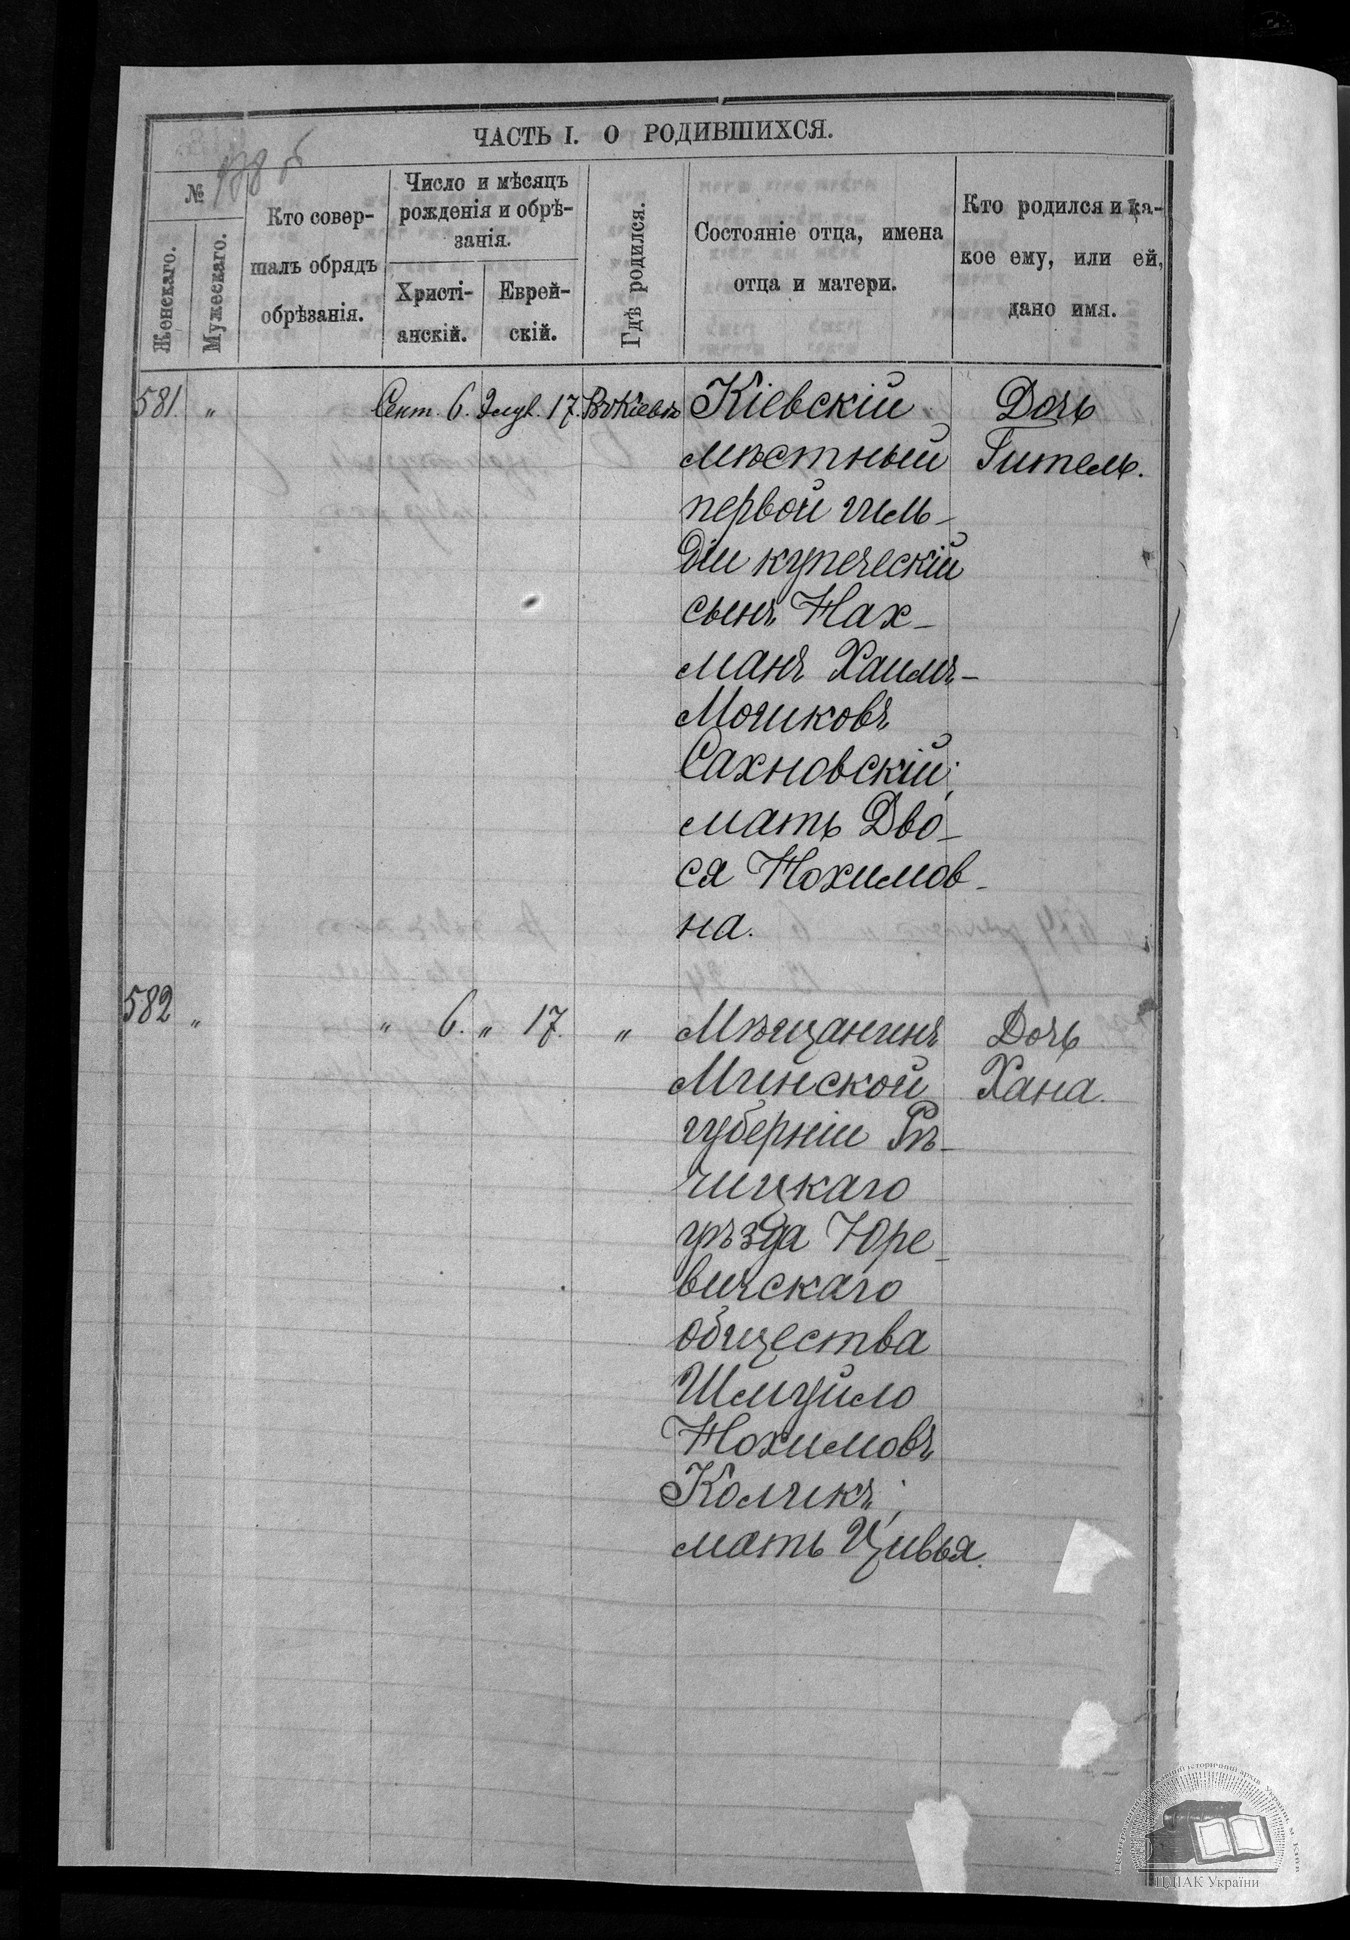 ЧАСТЬ I. О РОДИВШИХСЯ.
№
Женскаго.
Мужескаго.
Кто совер-
шалъ обрядъ
обрѣзанія.
Число и мѣсяцъ
рожденія и обрѣ-
занія.
Христі-
анскій.
Еврей-
скій.
Гдѣ родился.
Состояніе отца, имена
отца и матери.
Кто родился и ка-
кое ему, или ей,
дано имя.
581. „ Сент. 6. Элул. 17. Въ Кіевѣ Кіевскій Дочь
мѣстный Гитель.
первой гиль-
діи купеческій
сынъ Нах-
манъ Хаимъ-
Мошковъ
Сахновскій;
мать Дво-
ся Нохимов-
на.
582 „ „ 6. „ 17. „ Мѣщанинъ Дочь
Минской Хана.
губерніи Рѣ-
чицкаго
уѣзда Юре-
вичскаго
общества
Шмуйло
Нохимовъ
Колчикъ;
мать Цивья.
ЦДІАК України